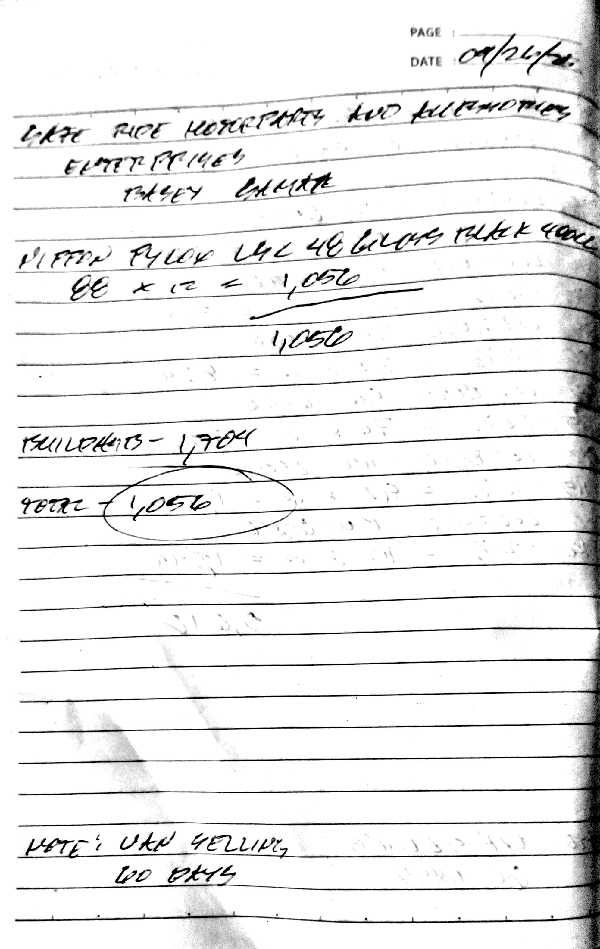 PAGE :
DATE : 09/26/20.
SAFE RIDE MOTORPARTS AND ALLEMOTHERS
ENTERPRISES
BASEY SAMAR
NIPPON PYLOX 48 GLOSS BLACK 400CC
88 x 12 = 1,056
1,056
BUILDMATS - 1,704
TOTAL - 1,056
NOTE: VAN SELLING
60 DAYS